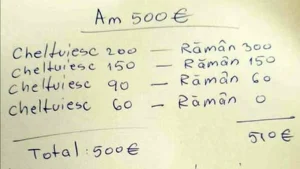 Am 500€
Cheltuiesc 200 — Rămân 300
cheltuiesc 150 — Rămân 150
cheltuiesc 90 — Rămân 60
cheltuiesc 60 — Rămân 0
Total: 500€ 510€